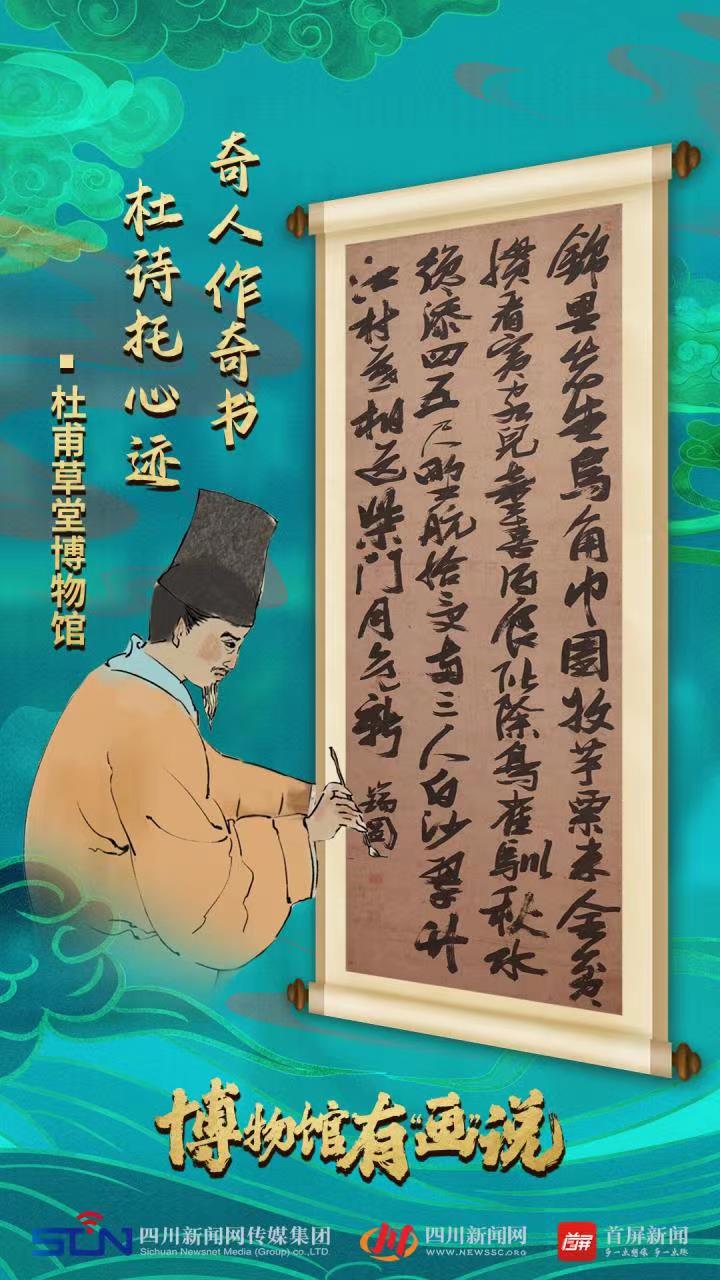 奇人作奇书
杜诗托心迹
■杜甫草堂博物馆
錦里先生烏角巾園收芋栗未全貧
慣看賓客兒童喜得食階除鳥雀馴秋水
纔深四五尺野航恰受兩三人白沙翠竹
江村暮相送柴門月色新
瑞圖
博物馆有“画”说
SCN 四川新闻网传媒集团
Sichuan Newsnet Media (Group) co.,LTD
四川新闻网
WWW.NEWSSC.ORG
首屏
首屏新闻
多一点想像 多一点趣